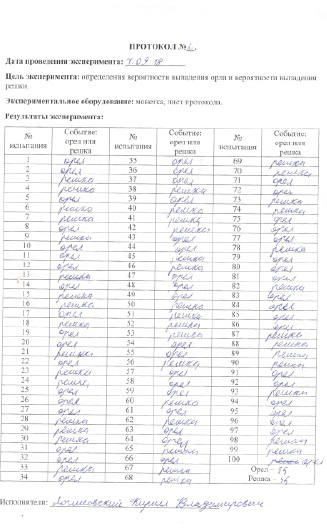 ПРОТОКОЛ №1.
Дата проведения эксперимента: 7.09.18
Цель эксперимента: определения вероятности выпадения орла и вероятности выпадения
решки.
Экспериментальное оборудование: монета, лист протокола.
Результаты эксперимента:
№ испытания Событие: орел или решка № испытания Событие: орел или решка № испытания Событие: орел или решка
1 орел 35 орел 69 решка
2 орел 36 орел 70 решка
3 решка 37 орел 71 орел
4 решка 38 решка 72 орел
5 орел 39 орел 73 решка
6 решка 40 решка 74 решка
7 решка 41 решка 75 орел
8 орел 42 решка 76 орел
9 решка 43 орел 77 орел
10 орел 44 орел 78 решка
11 орел 45 решка 79 орел
12 орел 46 решка 80 орел
13 решка 47 решка 81 орел
14 орел 48 орел 82 решка
15 решка 49 орел 83 орел
16 решка 50 решка 84 орел
17 орел 51 решка 85 орел
18 решка 52 решка 86 орел
19 орел 53 решка 87 решка
20 орел 54 орел 88 решка
21 решка 55 орел 89 решка
22 орел 56 решка 90 решка
23 решка 57 орел 91 орел
24 решка 58 орел 92 орел
25 орел 59 орел 93 решка
26 орел 60 решка 94 решка
27 орел 61 орел 95 орел
28 решка 62 решка 96 орел
29 решка 63 орел 97 орел
30 решка 64 орел 98 решка
31 орел 65 решка 99 решка
32 орел 66 орел 100 орел
33 решка 67 решка Орел –
34 орел 68 решка Решка –
Исполнители: Кирилл Владимирович